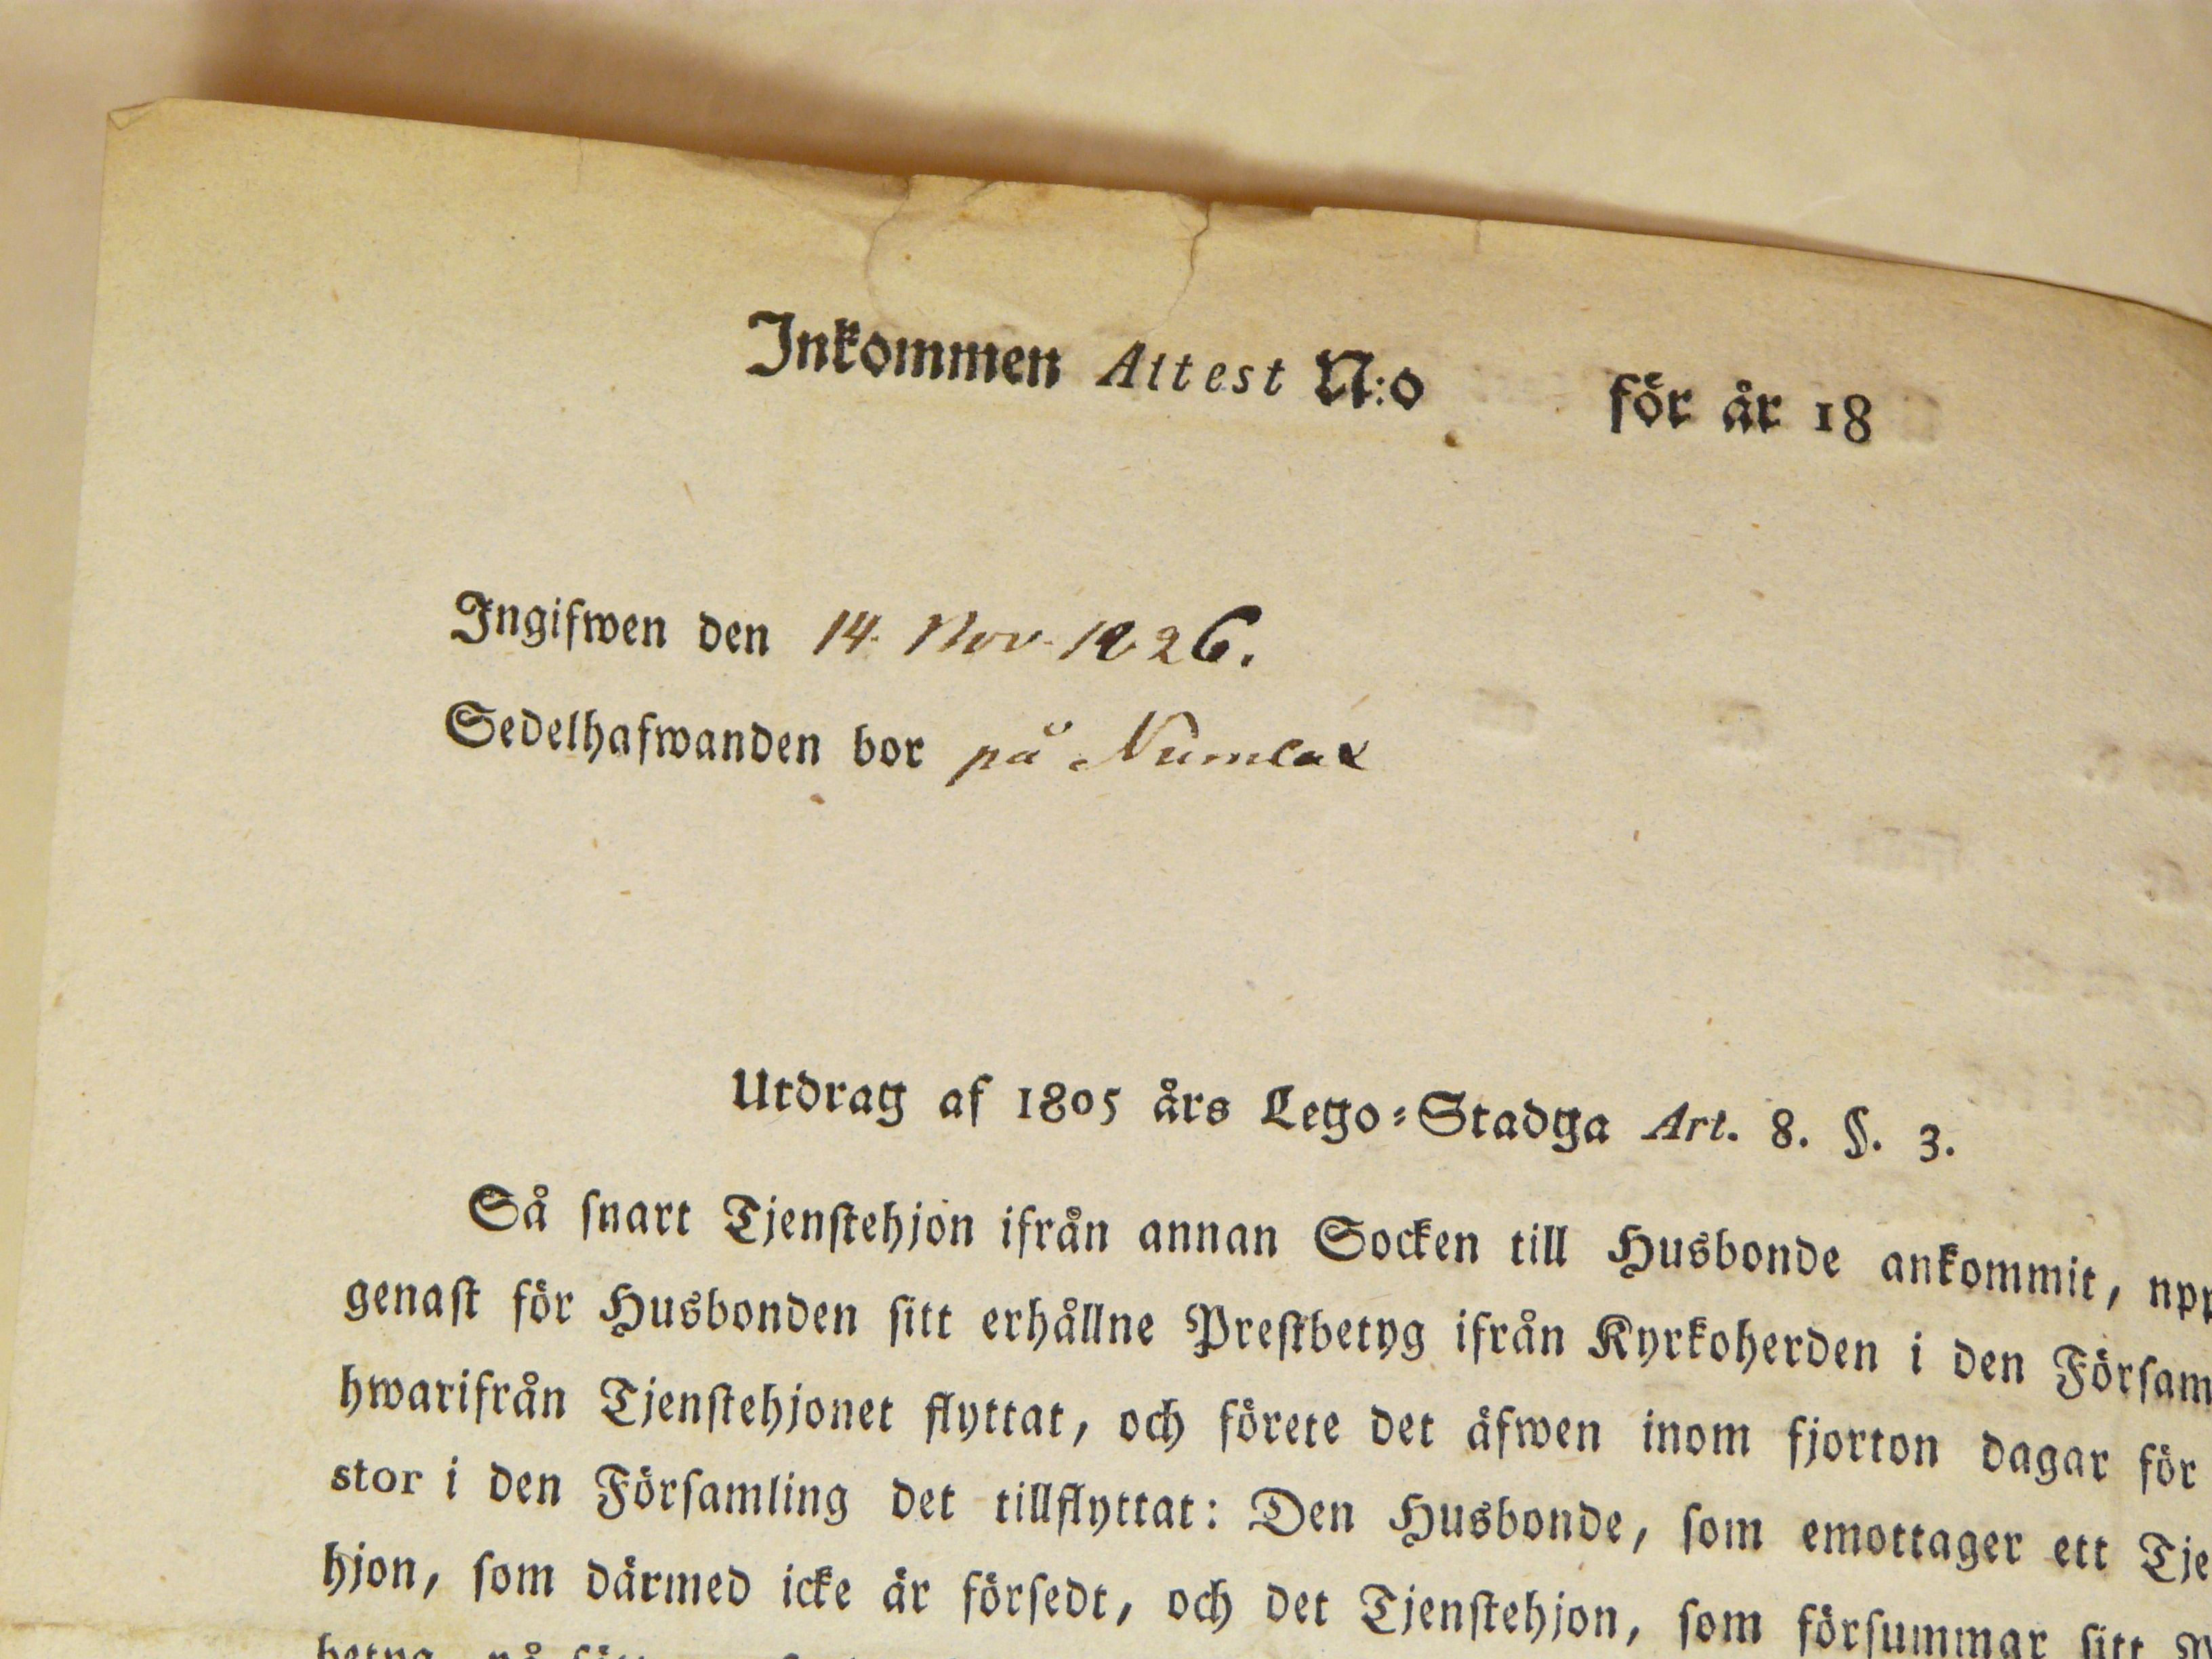 Inkommen Attest N:o för år 18
Ingifwen den 14. Nov. 1826.
Sedelhafwanden bor på Numlax
Utdrag af 1805 års Lego-Stadga Art. 8. §. 3.
Så snart Tjenstehjon ifrån annan Socken till Husbonde ankommit, upp
genast för Husbonden sitt erhållne Prestbetyg ifrån Kyrkoherden i den Försam
hwarifrån Tjenstehjonet flyttat, och förete det äfwen inom fjorton dagar för
stor i den Församling det tillflyttat: Den Husbonde, som emottager ett Tje
hjon, som därmed icke är försedt, och det Tjenstehjon, som försummar sitt